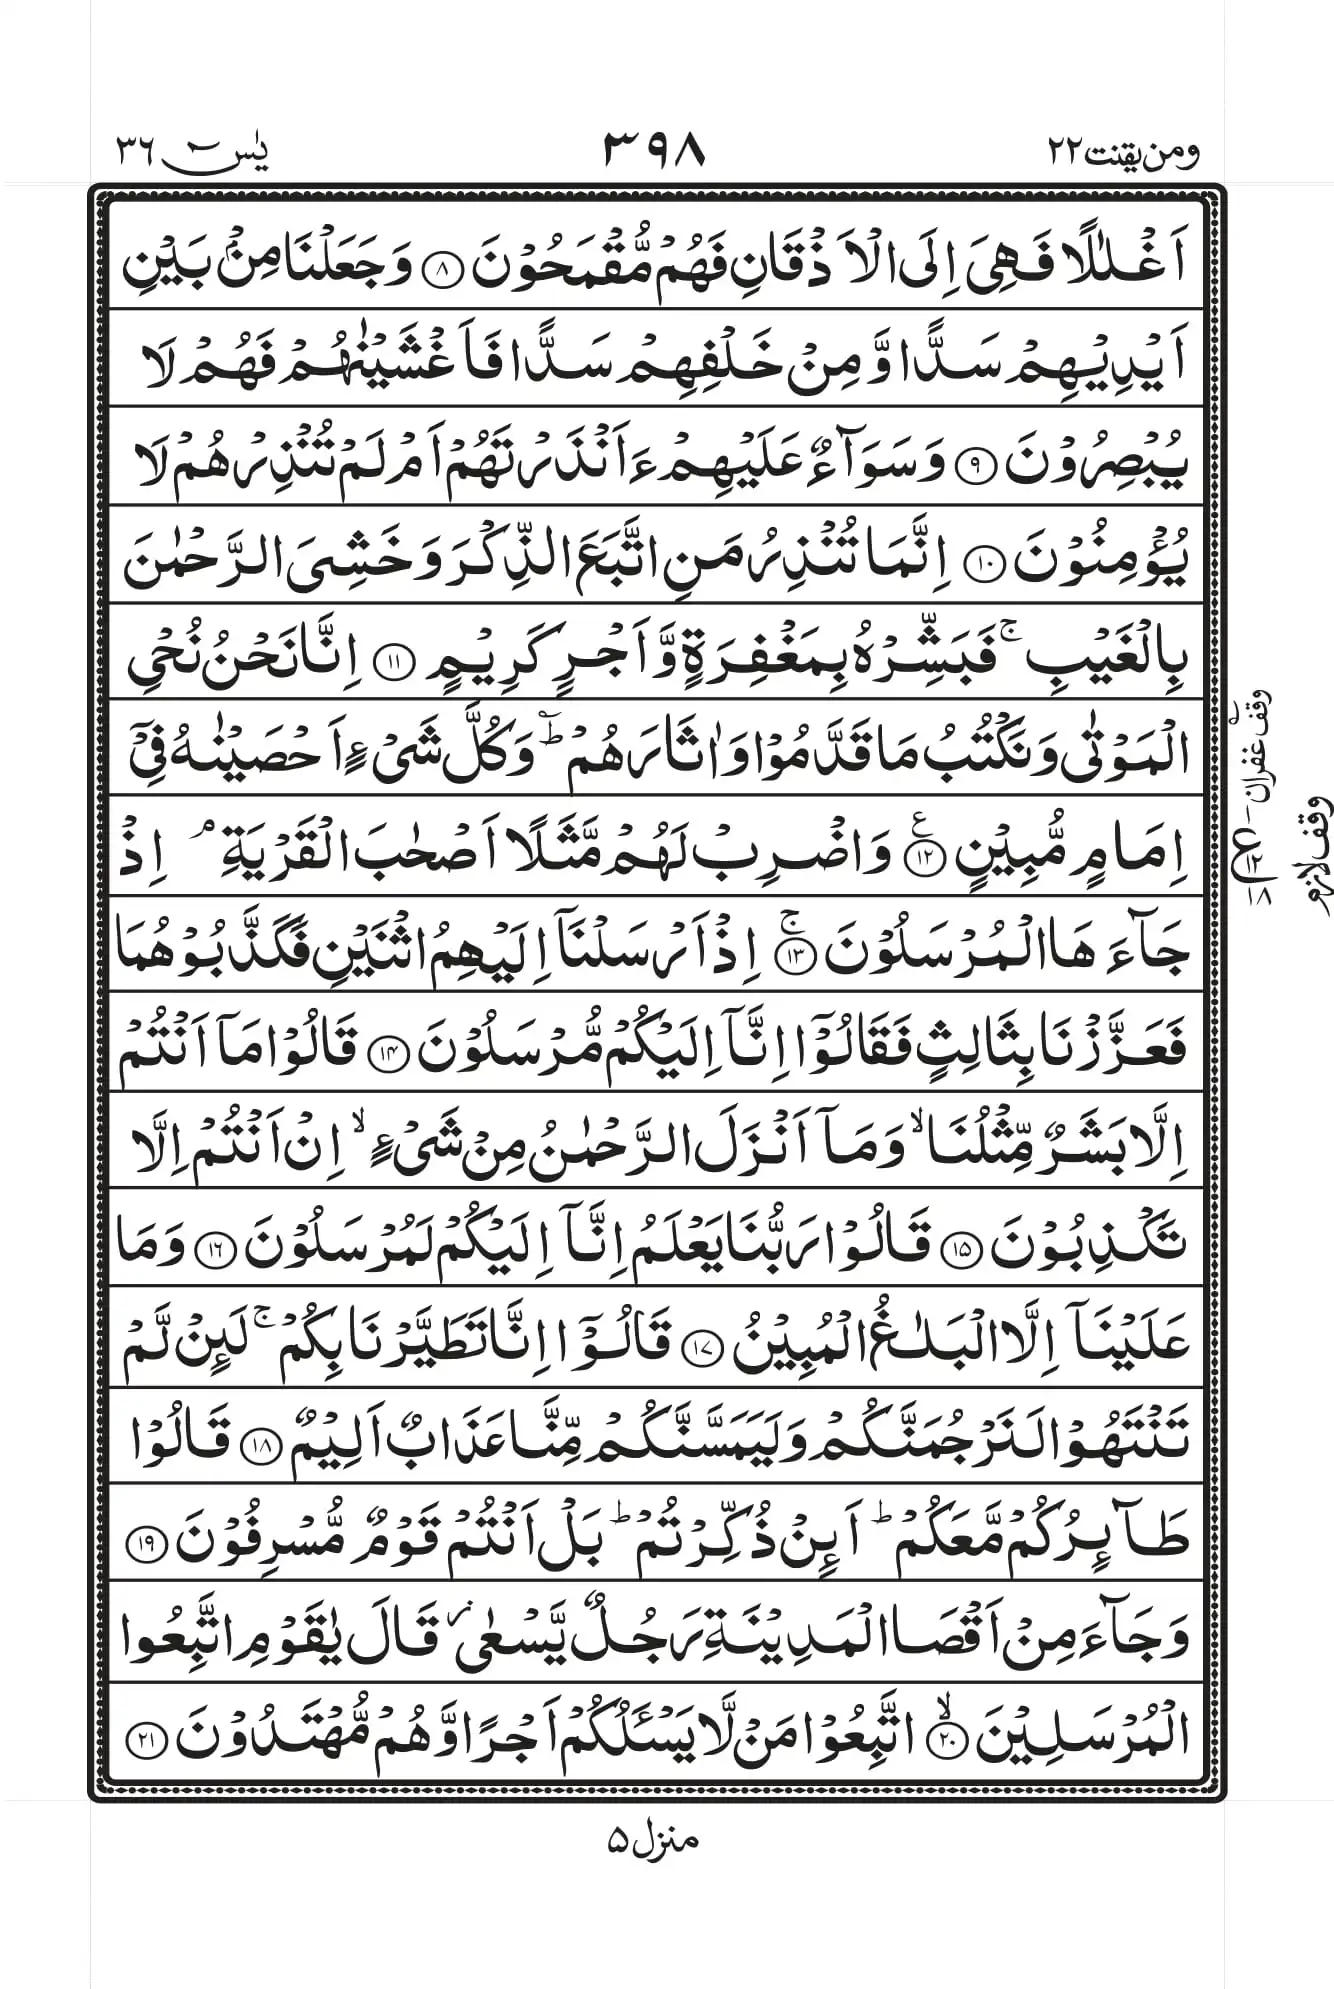 ومن يقنت ٢٢
٣٩٨
يٰسٓ ٣٦
اَغْلٰلًا فَهِىَ اِلَى الْاَذْقَانِ فَهُمْ مُّقْمَحُوْنَ ﴿٨﴾ وَجَعَلْنَا مِنْۢ بَيْنِ
اَيْدِيْهِمْ سَدًّا وَّ مِنْ خَلْفِهِمْ سَدًّا فَاَغْشَيْنٰهُمْ فَهُمْ لَا
يُبْصِرُوْنَ ﴿٩﴾ وَسَوَآءٌ عَلَيْهِمْ ءَاَنْذَرْتَهُمْ اَمْ لَمْ تُنْذِرْهُمْ لَا
يُؤْمِنُوْنَ ﴿١٠﴾ اِنَّمَا تُنْذِرُ مَنِ اتَّبَعَ الذِّكْرَ وَخَشِىَ الرَّحْمٰنَ
بِالْغَيْبِ ۚ فَبَشِّرْهُ بِمَغْفِرَةٍ وَّاَجْرٍ كَرِيْمٍ ﴿١١﴾ اِنَّا نَحْنُ نُحْىِ
الْمَوْتٰى وَنَكْتُبُ مَا قَدَّمُوْا وَاٰثَارَهُمْ ؕ وَكُلَّ شَىْءٍ اَحْصَيْنٰهُ فِىْٓ
اِمَامٍ مُّبِيْنٍ ﴿١٢﴾ ع وَاضْرِبْ لَهُمْ مَّثَلًا اَصْحٰبَ الْقَرْيَةِ ۘ اِذْ
جَآءَهَا الْمُرْسَلُوْنَ ۚ ﴿١٣﴾ اِذْ اَرْسَلْنَآ اِلَيْهِمُ اثْنَيْنِ فَكَذَّبُوْهُمَا
فَعَزَّزْنَا بِثَالِثٍ فَقَالُوْٓا اِنَّآ اِلَيْكُمْ مُّرْسَلُوْنَ ﴿١٤﴾ قَالُوْا مَآ اَنْتُمْ
اِلَّا بَشَرٌ مِّثْلُنَا ۙ وَمَآ اَنْزَلَ الرَّحْمٰنُ مِنْ شَىْءٍ ۙ اِنْ اَنْتُمْ اِلَّا
تَكْذِبُوْنَ ﴿١٥﴾ قَالُوْا رَبُّنَا يَعْلَمُ اِنَّآ اِلَيْكُمْ لَمُرْسَلُوْنَ ﴿١٦﴾ وَمَا
عَلَيْنَآ اِلَّا الْبَلٰغُ الْمُبِيْنُ ﴿١٧﴾ قَالُوْٓا اِنَّا تَطَيَّرْنَا بِكُمْ ۚ لَئِنْ لَّمْ
تَنْتَهُوْا لَنَرْجُمَنَّكُمْ وَلَيَمَسَّنَّكُمْ مِّنَّا عَذَابٌ اَلِيْمٌ ﴿١٨﴾ قَالُوْا
طَآئِرُكُمْ مَّعَكُمْ ؕ اَئِنْ ذُكِّرْتُمْ ؕ بَلْ اَنْتُمْ قَوْمٌ مُّسْرِفُوْنَ ﴿١٩﴾
وَجَآءَ مِنْ اَقْصَا الْمَدِيْنَةِ رَجُلٌ يَّسْعٰى ز قَالَ يٰقَوْمِ اتَّبِعُوا
الْمُرْسَلِيْنَ ۙ ﴿٢٠﴾ اتَّبِعُوْا مَنْ لَّا يَسْئَلُكُمْ اَجْرًا وَّهُمْ مُّهْتَدُوْنَ ﴿٢١﴾
وقف غفران
وقف لازم
منزل ٥